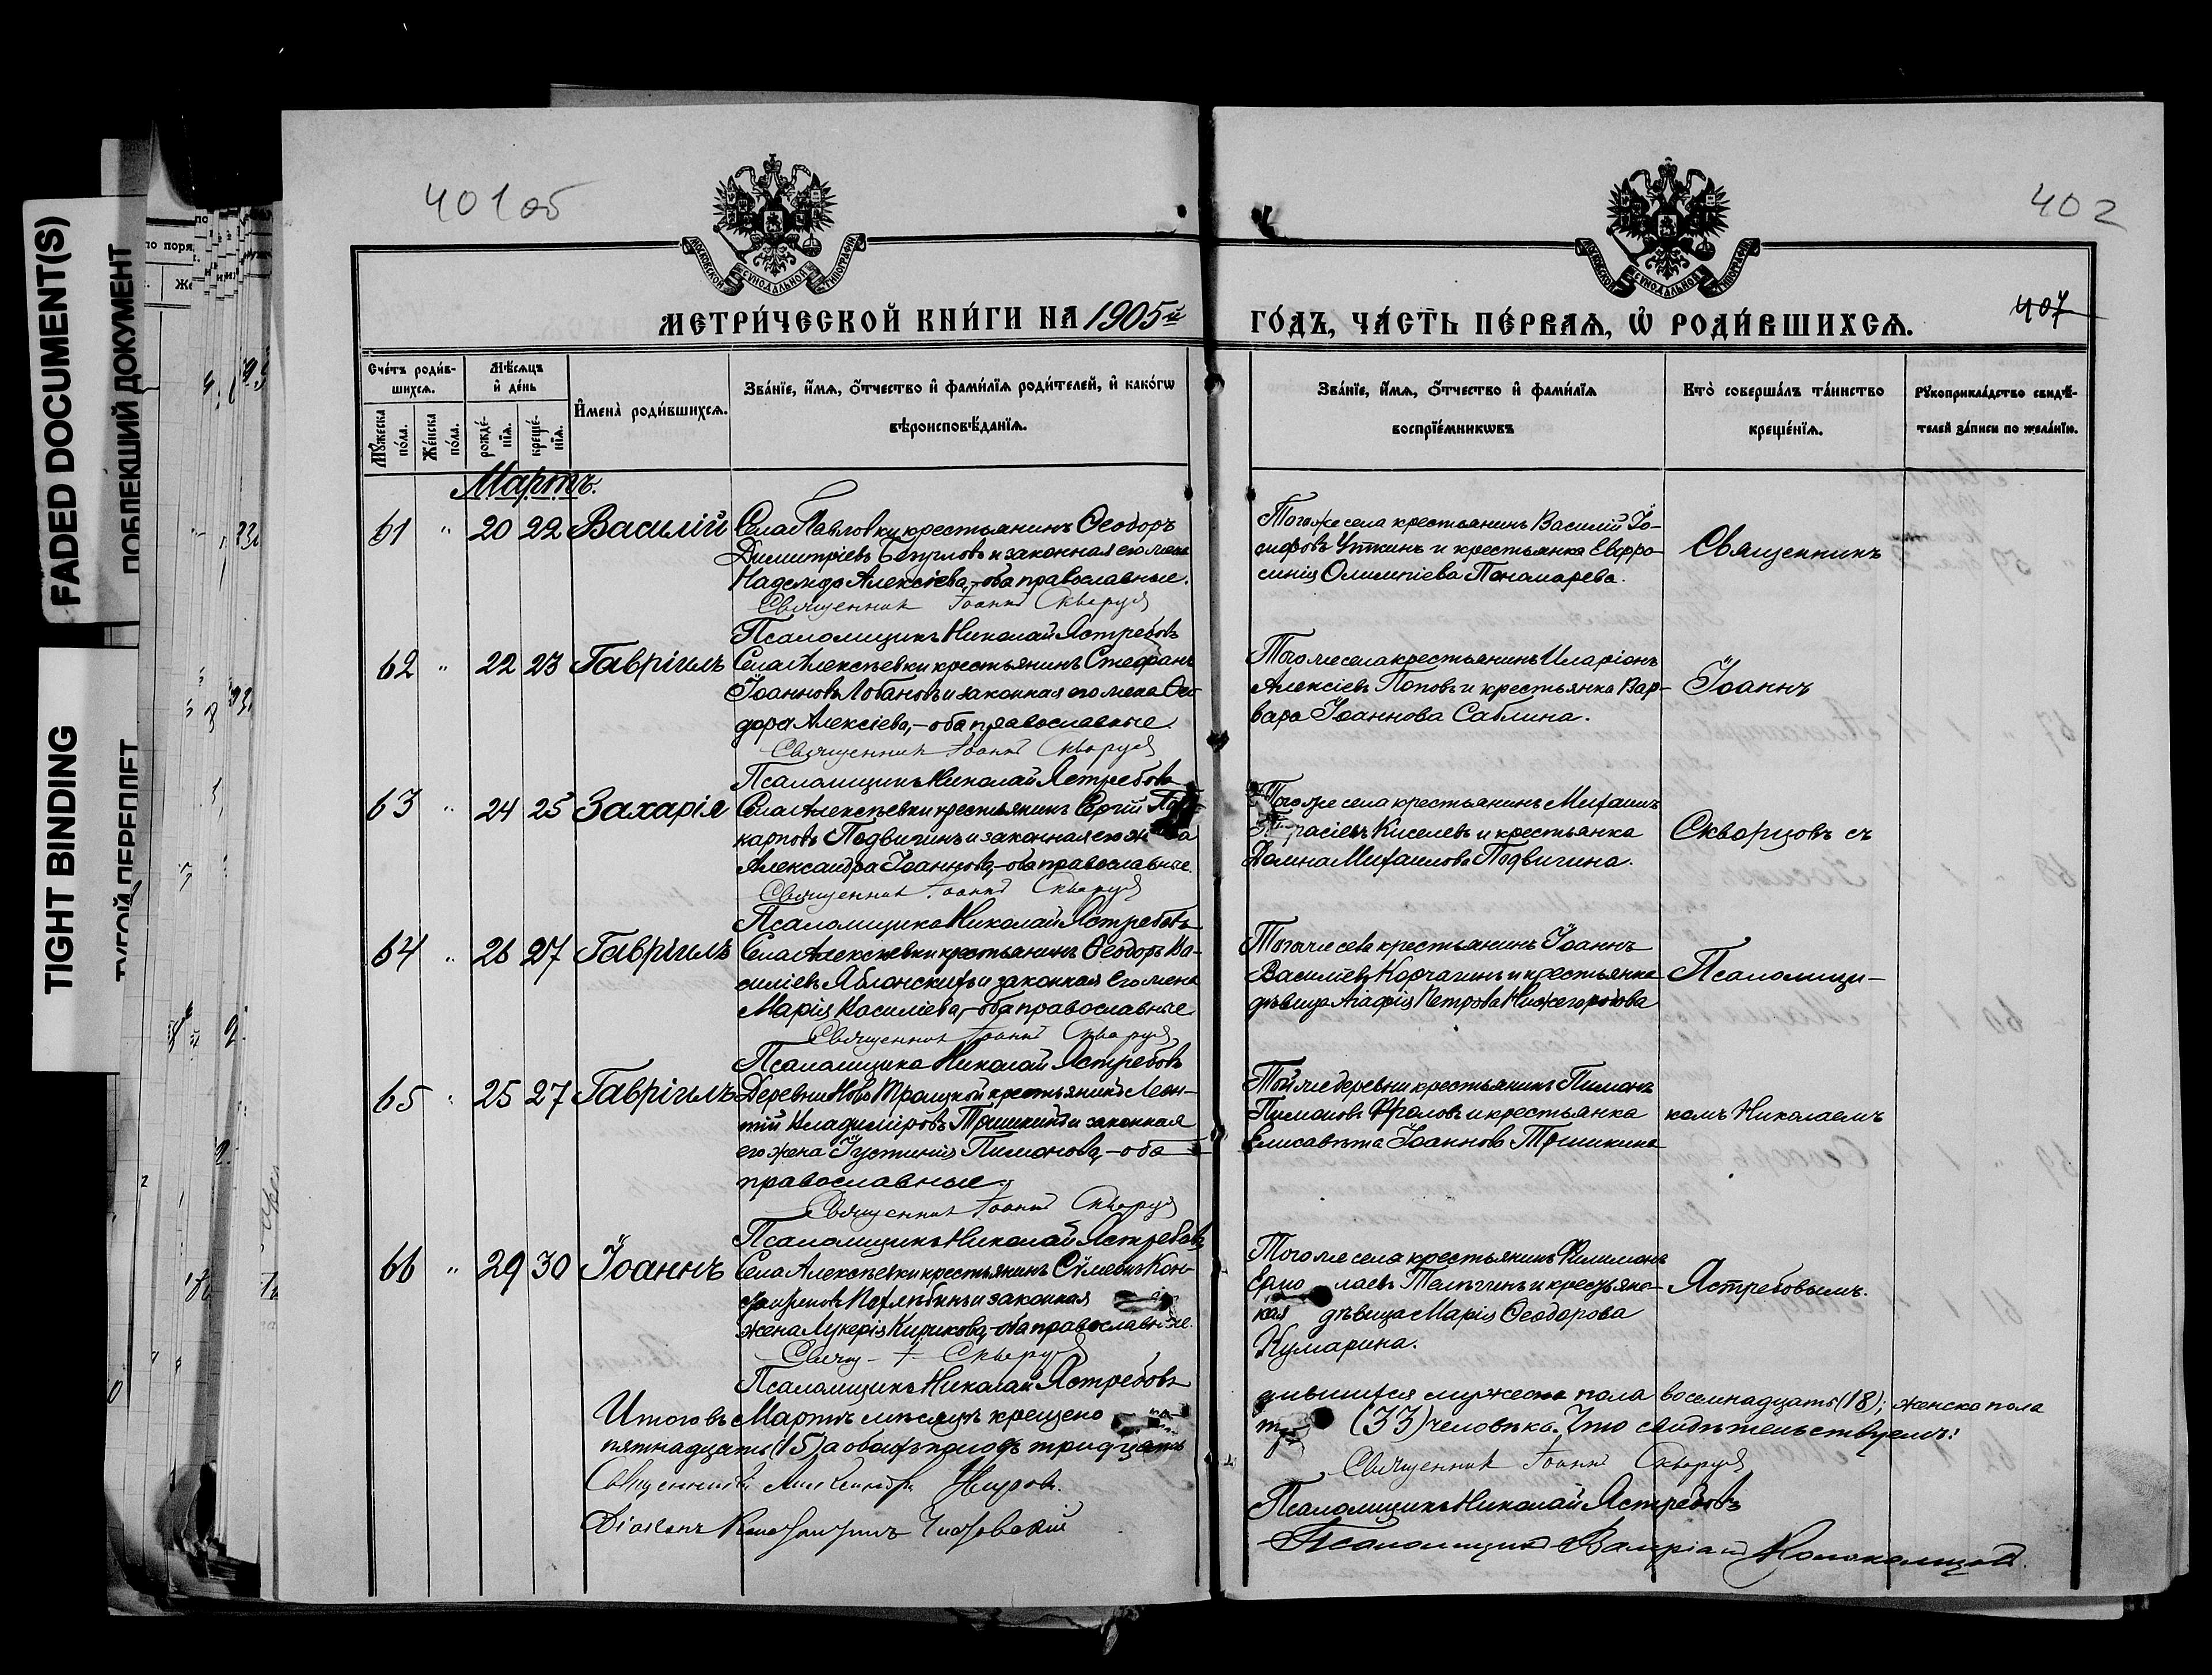 FADED DOCUMENT(S)
ПОБЛЕКШИЙ ДОКУМЕНТ
TIGHT BINDING
ТУГОЙ ПЕРЕПЛЕТ
401об
402
407
МОСКОВСКОЙ СѴНОДАЛЬНОЙ ТИПОГРАФІИ
МОСКОВСКОЙ СѴНОДАЛЬНОЙ ТИПОГРАФІИ
МЕТРИ́ЧЕСКОЙ КНИ́ГИ НА 1905й
ГО́ДЪ, ЧА́СТЬ ПЕ́РВАѦ, Ѡ҆ РОДИ́ВШИХСѦ.
Сче́тъ роди́в-
шихсѧ.
Мꙋ́жеска по́ла.
Же́нска по́ла.
Мѣ́сѧцъ
и҆ де́нь
рожде́-
нїѧ.
креще́-
нїѧ.
И҆мена̀ роди́вшихсѧ.
Зва́нїе, и҆́мѧ, ѻ҆́тчество и҆ фами́лїѧ роди́телей, и҆ како́гѡ
вѣроисповѣ́данїѧ.
Зва́нїе, и҆́мѧ, ѻ҆́тчество и҆ фами́лїѧ
воспрїе́мникѡвъ
Кто̀ соверша́лъ та́инство
креще́нїѧ.
Рꙋкоприкла́дство свидѣ́-
телей за́писи по жела́нїю.
Мартъ.
61 " 20 22 Василій
Села Павловки крестьянинъ Ѳеодоръ
Димитріевъ и законная его жена
Надежда Алексіева,-оба православные.
Священникъ Іоаннъ Скворцовъ
Псаломщикъ Николай Ястребовъ
Того же села крестьянинъ Василій Іо-
сифовъ Уткинъ и крестьянка Евфро-
синія Олимпіева Пономарева.
Священникъ
62 " 22 23 Гавріилъ
Села Алексѣевки крестьянинъ Стефанъ
Іоанновъ Лобановъ и законная его жена Ѳео-
дора Алексіева,-оба православные.
Священникъ Іоаннъ Скворцовъ
Псаломщикъ Николай Ястребовъ
Того же села крестьянинъ Иларіонъ
Алексіевъ Поповъ и крестьянка Вар-
вара Іоаннова Саблина.
Іоаннъ
63 " 24 25 Захарія
Села Алексѣевки крестьянинъ Сергій
карповъ Подвигинъ и законная его жена
Александра Іоаннова,-оба православные.
Священникъ Іоаннъ Скворцовъ
Псаломщикъ Николай Ястребовъ
Того же села крестьянинъ Михаилъ
Киселевъ и крестьянка
Домна Михаилова Подвигина.
Скворцовъ съ
64 " 26 27 Гавріилъ
Села Алексѣевки крестьянинъ Ѳеодоръ Ва-
силіевъ Яблонскихъ и законная его жена
Марія Василіева,-оба православные.
Священникъ Іоаннъ Скворцовъ
Псаломщикъ Николай Ястребовъ
Того же села крестьянинъ Іоаннъ
Василіевъ Корчагинъ и крестьянка
дѣвица Агафія Петрова Нижегородова
Псаломщи-
65 " 25 27 Гавріилъ
Деревни Ново Троицкой крестьянинъ Леон-
тій Владиміровъ Трошкинъ и законная
его жена Іустинія Пимонова,-оба
православные.
Священникъ Іоаннъ Скворцовъ
Псаломщикъ Николай Ястребовъ
Той же деревни крестьянинъ Пимонъ
Пимоновъ Фроловъ и крестьянка
Елисавѣта Іоаннова Трошкина
комъ Николаемъ
66 " 29 30 Іоаннъ
Села Алексѣевки крестьянинъ Сѵмеонъ Кон-
и законная
жена Лукерія Кирикова,-оба православные.
Свящ- І- Скворцовъ
Псаломщикъ Николай Ястребовъ
Того же села крестьянинъ Филимонъ
Ермолаевъ Телѣгинъ и крестьянс-
кая дѣвица Марія Ѳеодорова
Кумарина.
Ястребовымъ.
Итого въ Мартѣ мѣсяцѣ крещено
дившихся мужеска пола восемнадцать (18); женска пола
пятнадцать (15) а обоихъ половъ тридцать
три (33) человѣка. Что свидѣтельствуемъ:
Священникъ Іоаннъ Скворцовъ
Псаломщикъ Николай Ястребовъ
Псаломщикъ Валеріанъ
Священникъ Александръ
Діаконъ Константинъ